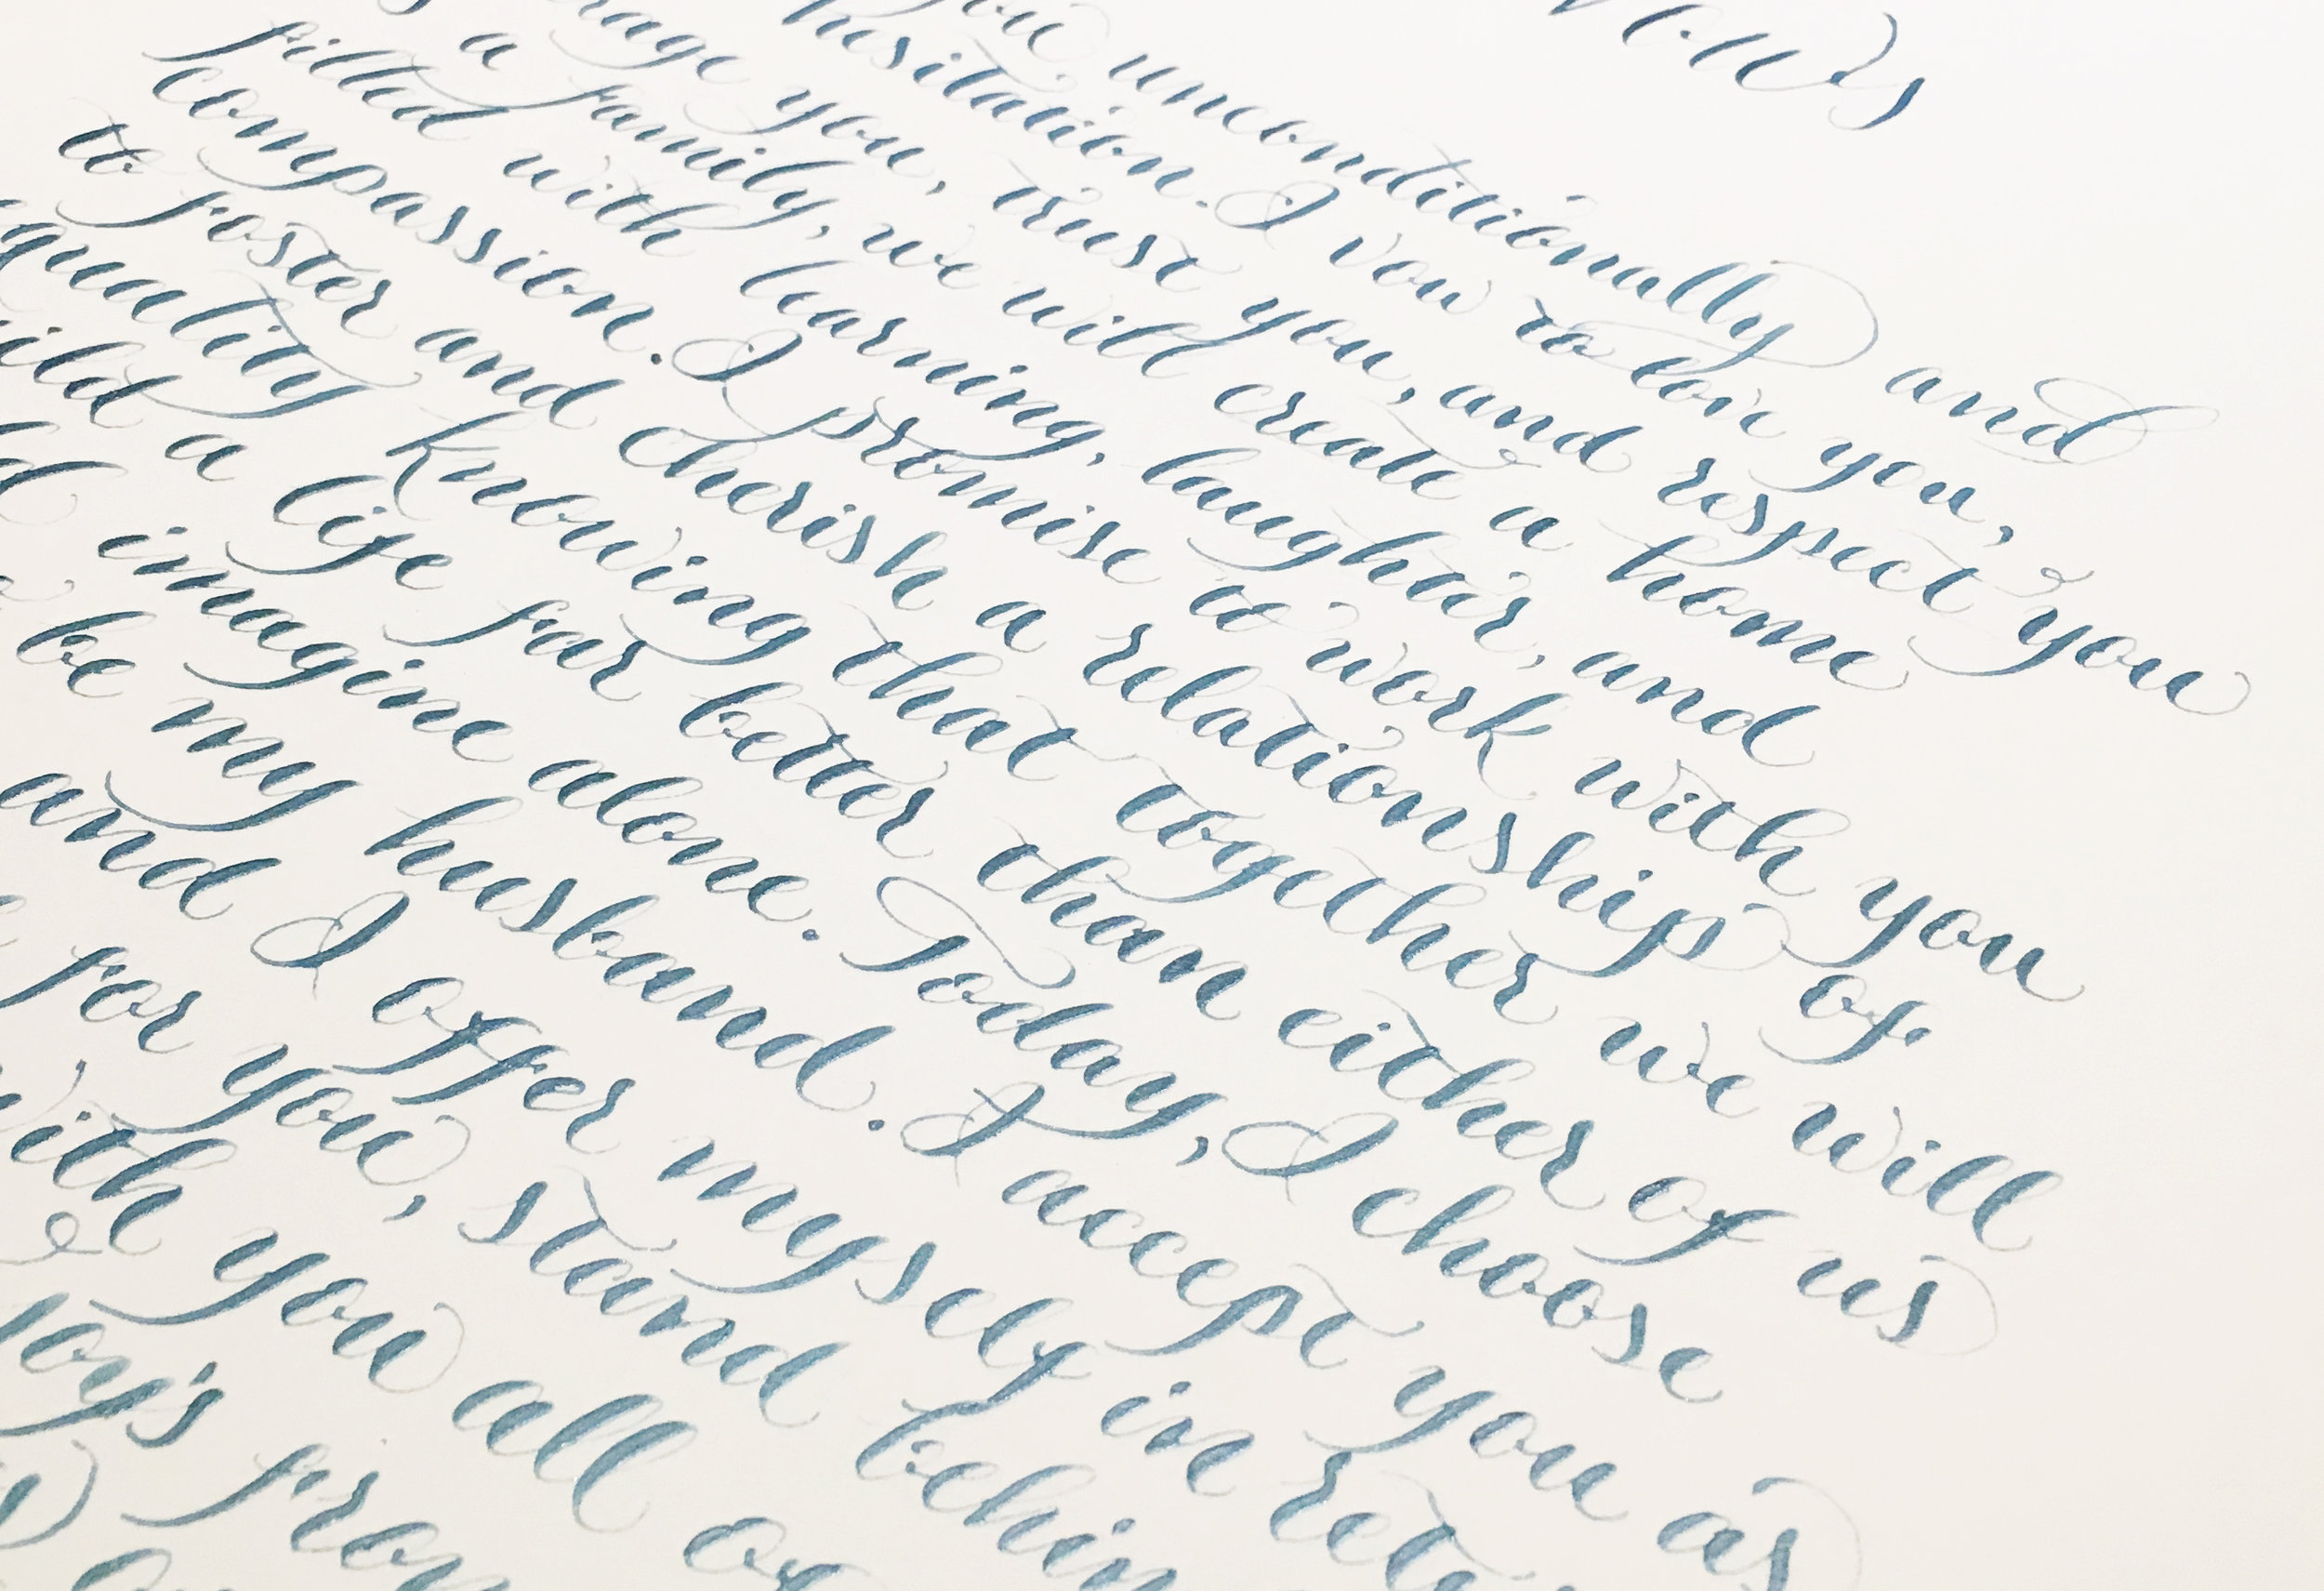 you unconditionally and
hesitation. I vow to love you,
rage you, trust you, and respect you
a family, we will create a home
filled with learning, laughter, and
compassion. I promise to work with you
to foster and cherish a relationship of
quality knowing that together we will
uild a life far better than either of us
ld imagine alone. Today, I choose
be my husband. I accept you as
and I offer myself in retu
for you, stand behin
with you all of